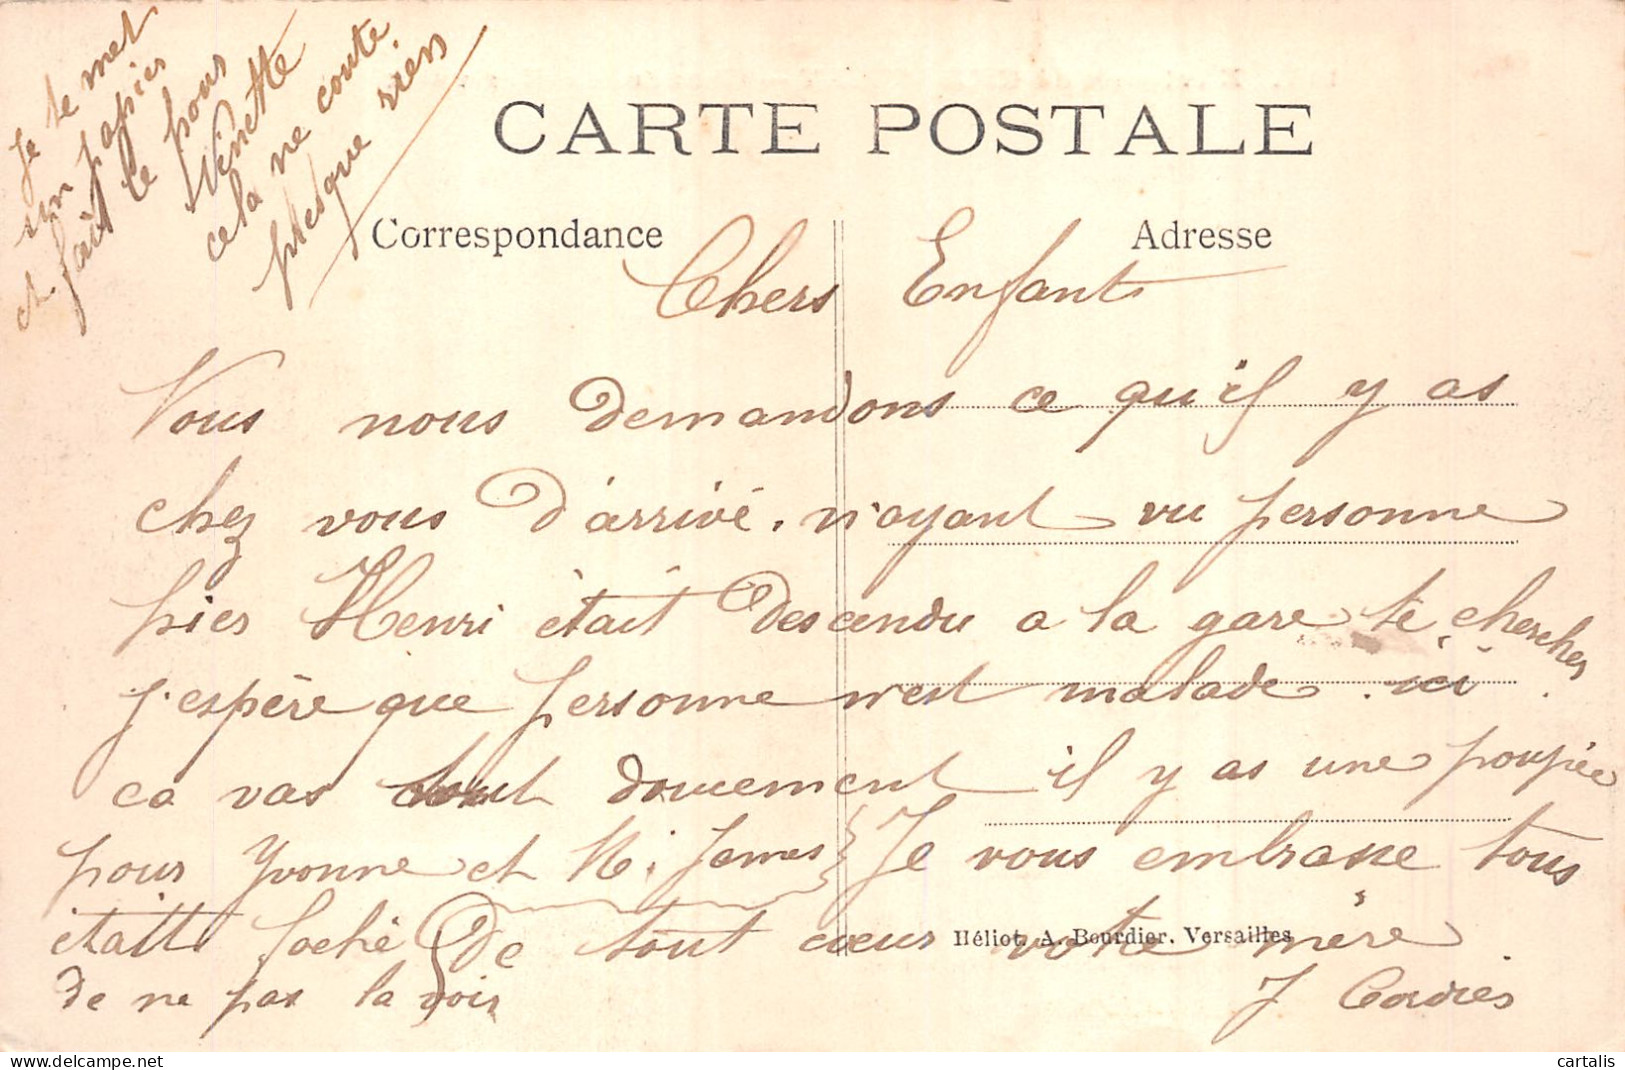 Je te met
un papier
et fait le pour
Ninette
cela ne coute
presque rien
CARTE POSTALE
Correspondance
Adresse
Chers Enfants
Vous nous demandons ce qu'il y as
chez vous d'arrivé. n'ayant vu personne
hier Henri était descendu a la gare te chercher
j'espère que personne n'est malade. ici
ca vas tout doucement il y as une poupée
pour Yvonne et M. James } Je vous embrasse tous
étaitt faché de tout cœur votre mère
de ne pas la voir
J Cordier
Héliot. A. Bourdier. Versailles
cartalis